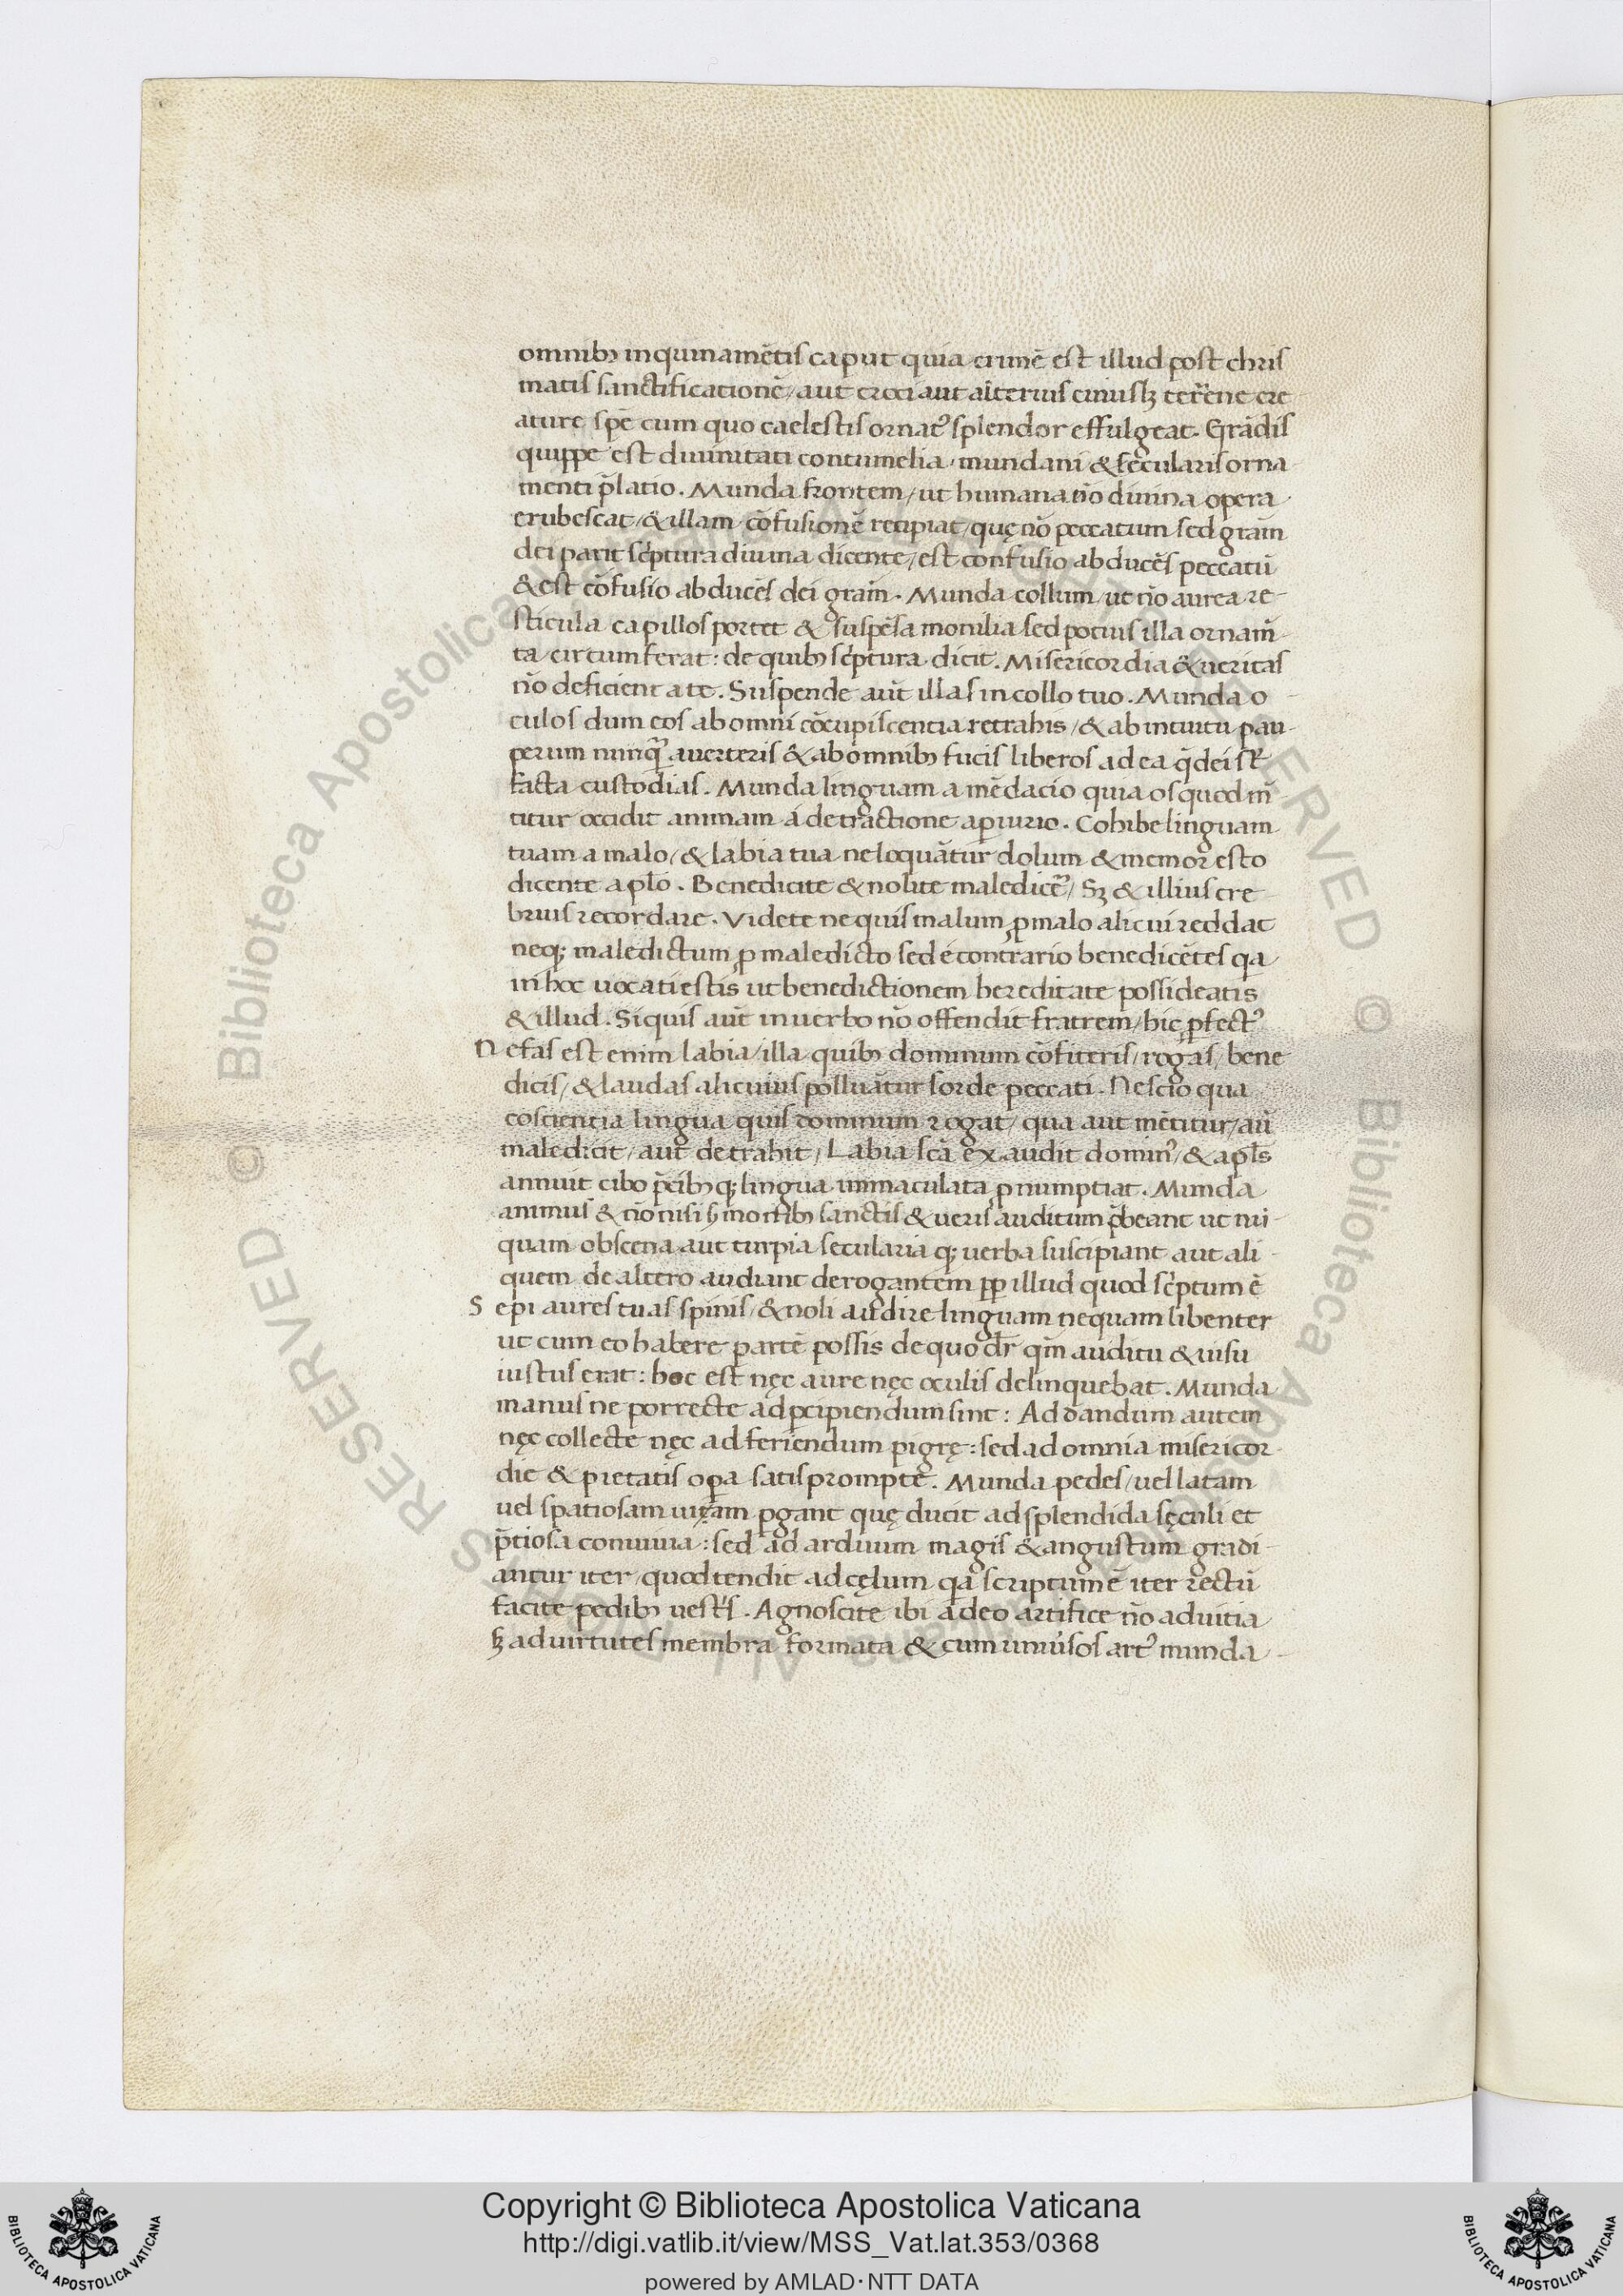 omnibꝫ inquinamētis caput quia crimē est illud post chris
matis sanctificationē / aut croci aut alterius cuiuslꝫ terrene cre
ature spē cum quo caelestis ornatꝰ splendor effulgeat. Grādis
quippe est diuinitati contumelia, mundani & secularis orna
menti p̄latio. Munda frontem / ut humana nō diuina opera
erubescat / & illam cōfusionē recipiat / quę nō peccatum sed grām
dei parit scͥptura diuina dicente / est confusio abducēs peccatū
& est cōfusio abducēs dei grām. Munda collum / ut nō aurea re-
sticula capillos portet & suspēsa monilia sed potius illa ornam̄-
ta circumferat: de quibꝫ scͥptura dicit. Misericordia & ueritas
nō deficient a te. Suspende aūt illas in collo tuo. Munda o
culos dum eos ab omni cōcupiscentia retrahis / & ab intuitu pau
perum nunqᷓ auerteris & ab omnibꝫ fucis liberos ad ea q̄ dei st̄
facta custodias. Munda linguam a mēdacio quia os quod m̄
titur occidit animam á detractione a ꝑiurio. Cohibe linguam
tuam a malo / & labia tua ne loquātur dolum & memor esto
dicente aplō. Benedicite & nolite maledicēꝰ / Sꝫ & illius cre
brius recordare. Videte ne quis malum ꝓ malo alicui reddat
neqꝫ maledictum ꝓ maledicto sed é contrario benedicētes qa
in hoc uocati estis ut benedictionem hereditate possideatis
& illud. Siquis aūt in uerbo nō offendit fratrem / hic ꝑfectꝰ
N efas est enim labia / illa quibꝫ dominum cōfiteris / rogas / bene
dicis / & laudas alicuius polluātur sorde peccati. Nescio qua
coscientia lingua quis dominum rogat / qua aut mētitur / aū
maledicit / aut detrahit / Labia scā exaudit dominꝰ / & apls̄
annuit cibo p̄cibꝫqꝫ lingua immaculata ꝓnumptiat. Munda
animus & nō nisi smonibꝫ sanctis & ueris auditum p̄beant ut nū-
quam obscena aut turpia secularia qꝫ uerba suscipiant aut ali-
quem de altero audiant derogantem ꝓp illud quod scͥptum ē
S epi aures tuas spinis / & noli audire linguam nequam libenter
ut cum eo habere partē possis de quo dr̄ qm̄ auditu & uisu
iustus erat: hoc est nęc aure nęc oculis delinquebat. Munda
manus ne porrecte ad ꝑcipiendum sint: Ad dandum autem
nęc collecte nęc ad feriendum pigrę: sed ad omnia misericor
die & pietatis opa satis prompte. Munda pedes / uel latam
uel spatiosam uitam ꝑgant quę ducit ad splendida sęculi et
p̄tiosa conuiuia: sed ad arduum magis & angustum gradi-
antur iter / quod tendit ad cęlum qa scriptum ē iter rectū
facite pedibꝫ uestͥs. Agnoscite ibi a deo artifice nō ad uitia
sꝫ ad uirtutes membra formata & cum uniūsos artꝰ munda
Copyright © Biblioteca Apostolica Vaticana
http://digi.vatlib.it/view/MSS_Vat.lat.353/0368
powered by AMLAD·NTT DATA